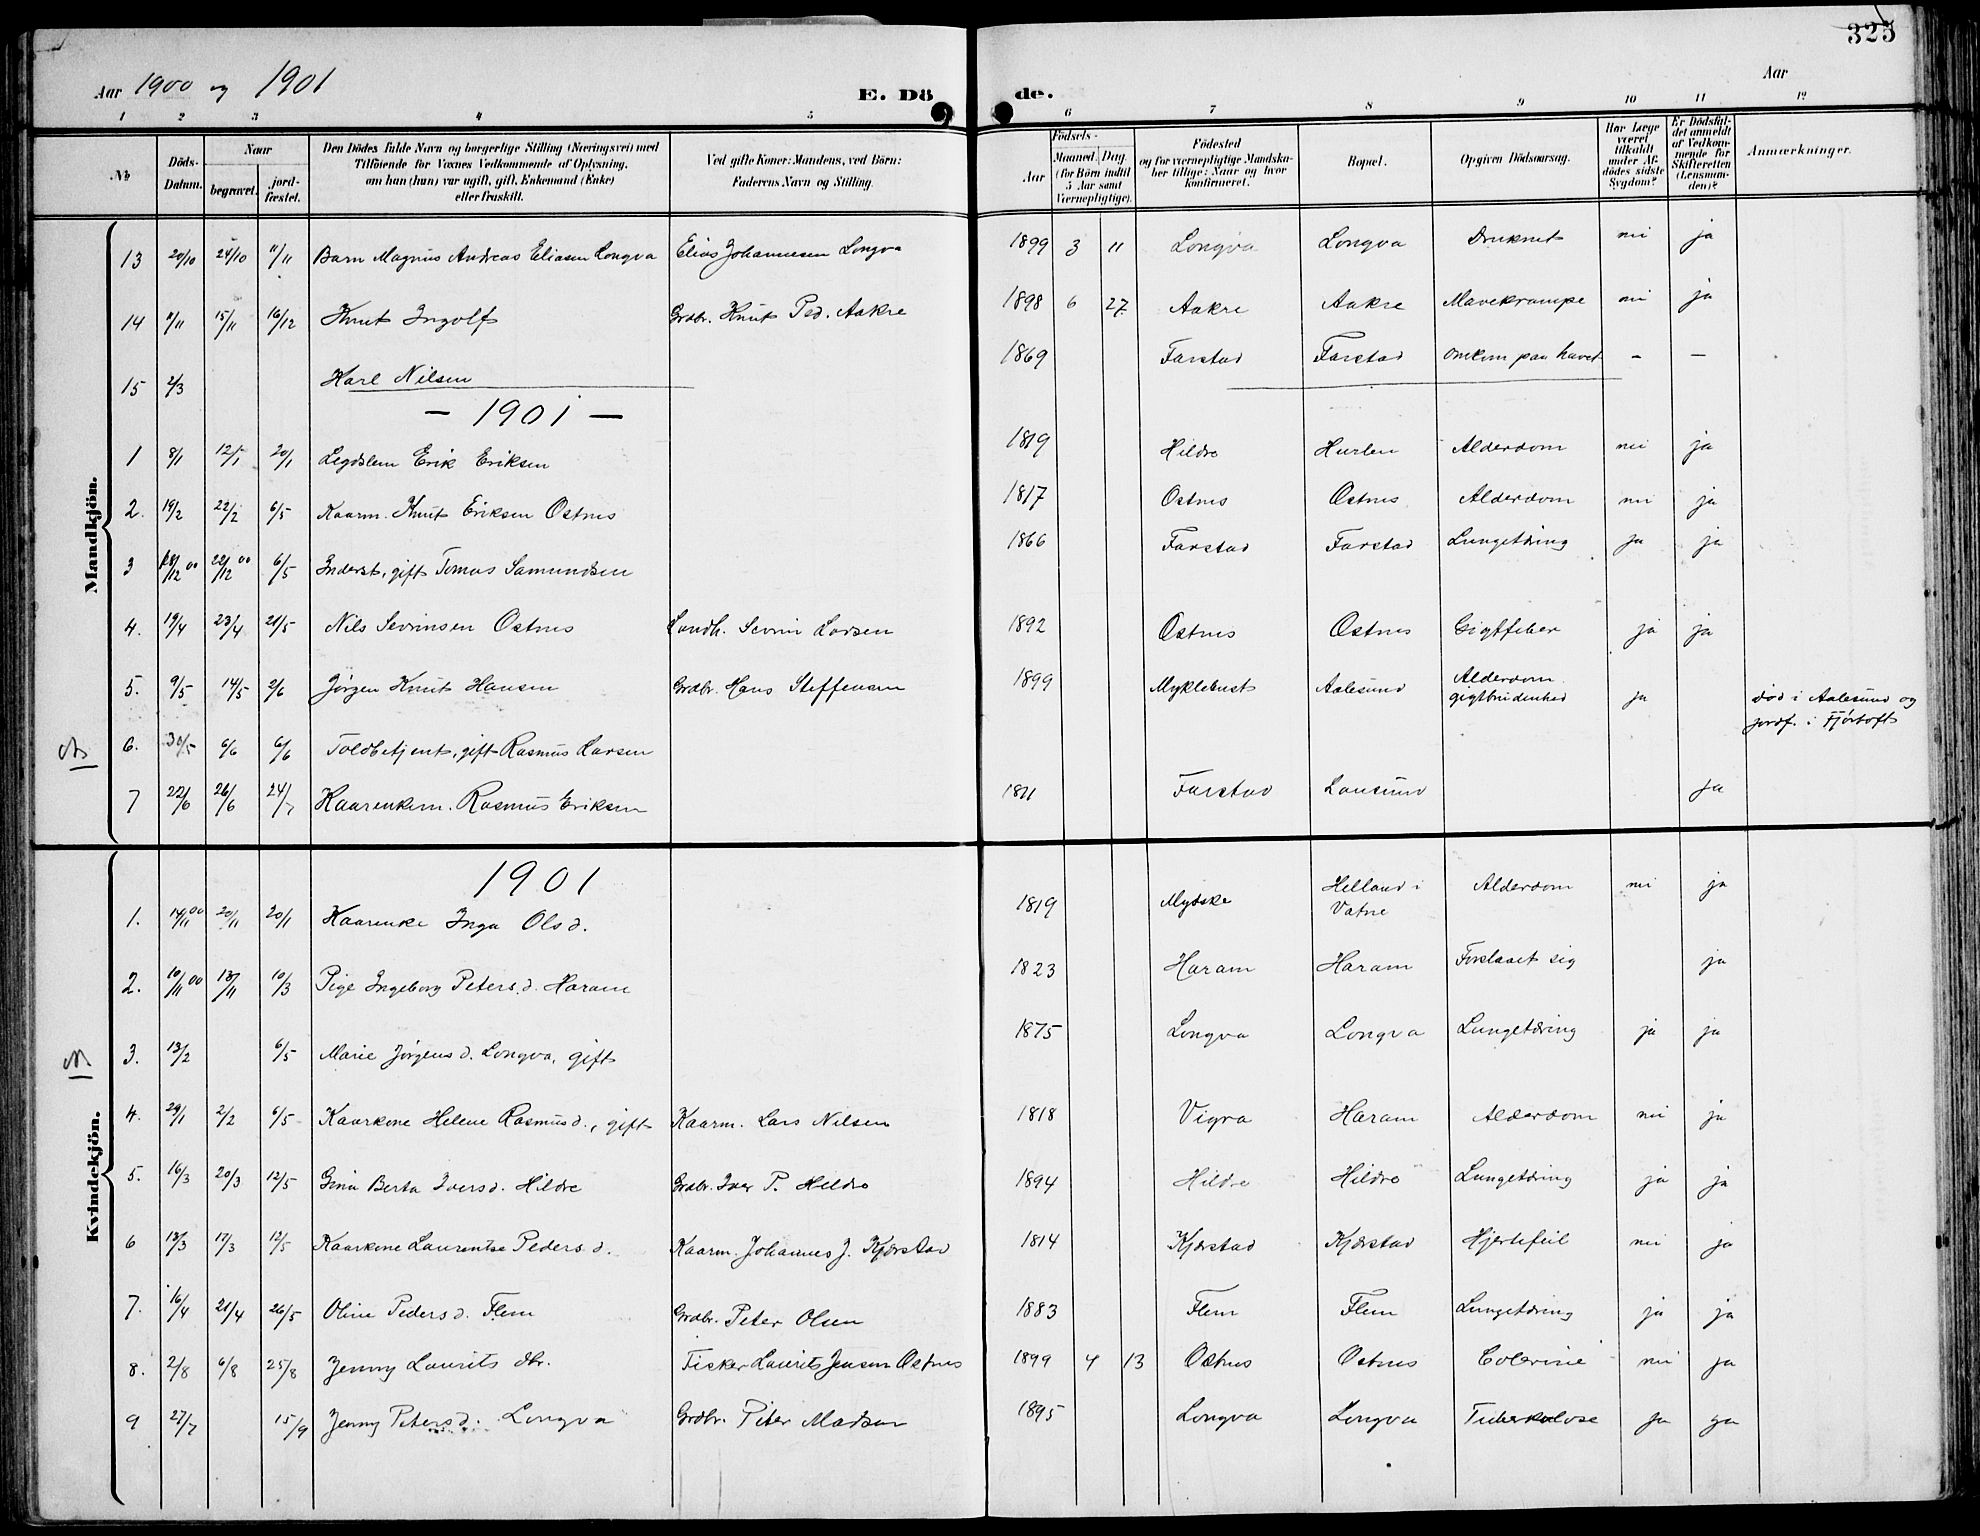 325
Aar 1900 og 1901
E. Dö de.
Aar
1 2 3 4 5 6 7 8 9 10 11 12
No
Döds-Datum.
Naar
begravet.
jord-fæstet.
Den Dödes fulde Navn og borgerlige Stilling (Næringsvei) med
Tilföiende for Voxnes Vedkommende af Oplysning,
om han (hun) var ugift, gift, Enkemand (Enke)
eller fraskilt.
Ved gifte Koner: Mandens, ved Börn:
Faderens Navn og Stilling.
Födsels-
Aar
Maaned. Dag
(for Börn indtil
5 Aar samt
Værnepligtige).
Födested
og for værnepligtige Mandska-
ber tillige: Naar og hvor
konfirmeret.
Bopæl.
Opgiven Dödsaarsag.
Har Læge
været
tilkaldt
under Af-
dödes sidste
Sygdom?
Er Dödsfal-
det anmeldt
af Vedkom-
mende for
Skifteretten
(Lensman-
den)?
Anmærkninger.
Mandkjön.
13 20/10 24/10 11/11 Barn Magnus Andreas Eliasen Longva Elias Johannesen Longva 1899 3 11 Longva Longva Druknet nei ja
14 11/11 15/11 16/12 Knut Ingolf Grdbr. Knut Ped. Aakre 1898 6 27. Aakre Aakre Mavekrampe nei ja
15 2/3 Karl Nilsen 1869 Farstad Farstad omkom paa havet - -
- 1901 -
1 8/1 12/1 20/1 Legdslem Erik Eriksen 1819 Hildre Hurlen Alderdom nei ja
2. 19/2 22/2 6/5 Kaarm. Knut Eriksen Ostnes 1817 Ostnes Ostnes Alderdom nei ja
3 18/12 00 22/12 00 6/5 Inderst, gift Tomas Samundsen 1866 Farstad Farstad Lungetæring ja ja
4. 19/4 23/4 21/5 Nils Sevrinsen Ostnes Landh. Sevrin Larsen 1892 Ostnes Ostnes Gigtfeber ja ja
5. 9/5 14/5 2/6 Jørgen Knut Hansen Grdbr. Hans Steffensen 1899 Myklebust Aalesund Alderdom. gigtbrudenhed ja død i Aalesund og
jordf. i Fjørtoft
6. 30/5 6/6 6/6 Toldbetjent, gift Rasmus Larsen
7 22/6 26/6 24/7 Kaarenkem. Rasmus Eriksen 1811 Farstad Lausund ja
Kvindekjön.
1901
1. 14/11 00 20/11 20/1 Kaarenke Inga Olsd. 1819 Mydske Helland i
Vatne Alderdom nei ja
2. 10/11 00 13/11 10/3 Pige Ingeborg Petersd. Haram 1823 Haram Haram Forslaaet sig ja
3. 13/2 6/5 Marie Jørgensd. Longva, gift 1875 Longva Longva Lungetæring ja ja
4. 29/1 2/2 6/5 Kaarkone Helene Rasmusd., gift Kaarm. Lars Nilsen 1818 Vigra Haram Alderdom nei ja
5. 16/3 20/3 12/5 Gina Berta Iversd. Hildre Grdbr. Iver P. Hildre 1894 Hildre Hildre Lungetæring ja ja
6 13/3 17/3 12/5 Kaarkone Laurentse Pedersd. Kaarm. Johannes J. Kjærstad 1814 Kjærstad Kjærstad Hjertefeil nei ja
7. 16/4 21/4 26/5 Oline Pedersd. Flem Grdbr. Peter Olsen 1883 Flem Flem Lungetæring ja ja
8. 2/8 6/8 25/8 Jenny Laurits dtr. Fisker Laurits Jensen Ostnes 1899 4 13 Ostnes Ostnes Colerine nei ja
9 27/7 15/9 Jenny Petersd. Longva Grdbr. Peter Madsen 1895 Longva Longva Tuberkulose ja ja